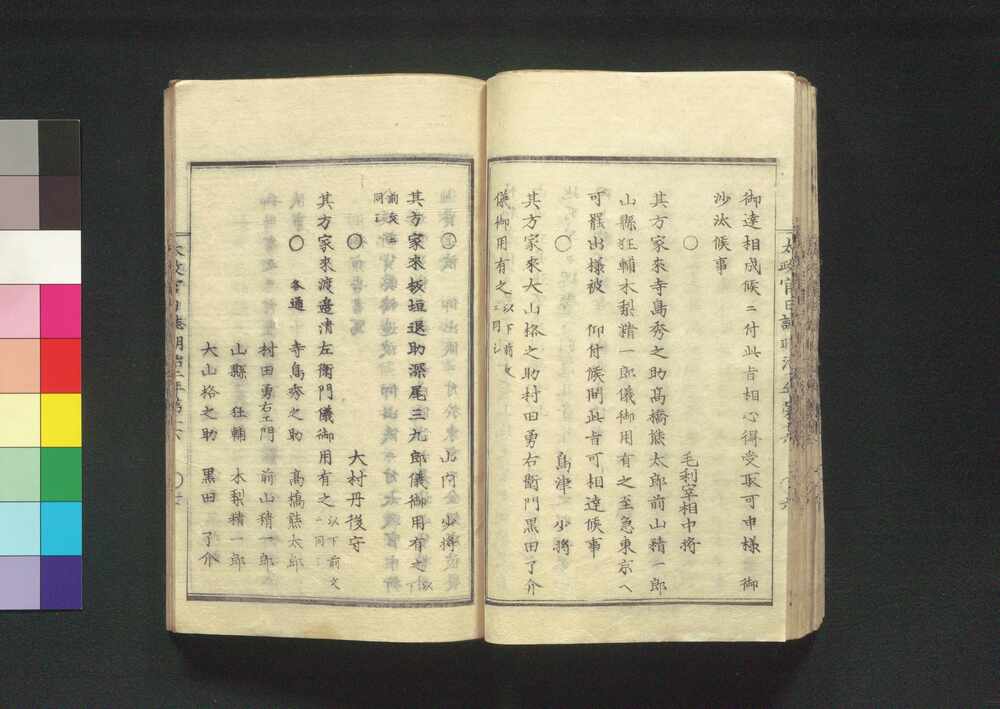 御達相成候ニ付此旨相心得受取可申樣　御
沙汰候事
○　毛利宰相中將
其方家來寺島秀之助髙橋熊太郎前山精一郎
山縣狂輔木梨精一郎儀御用有之至急東京へ
可罷出樣被　仰付候間此旨可相達候事
○　島津　少將
其方家來大山格之助村田勇右衛門黒田了介
儀御用有之以下前文ニ同シ
○　山内　少將
其方家來板垣退助深尾三九郎儀御用有之以下
前文ニ同シ
○　大村丹後守
其方家來渡邉清左衛門儀御用有之以下前文ニ同
○　各通　寺島秀之助　髙橋熊太郎
村田勇右エ門　前山精一郎
山縣　狂輔　木梨精一郎
大山格之助　黒田　了介
太政官日誌明治二年第十六